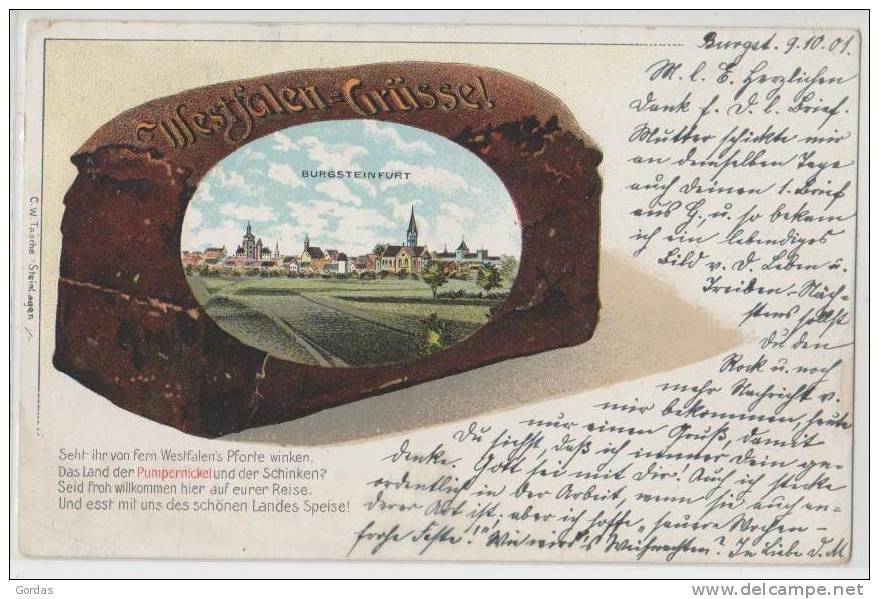 Westfalen-Grüsse!
BURGSTEINFURT
C. W. Tasche Steinhagen
Seht ihr von fern Westfalen's Pforte winken,
Das Land der Pumpernickel und der Schinken?
Seid froh willkommen hier auf eurer Reise,
Und esst mit uns des schönen Landes Speise!
Burgst. 9.10.01.
M. l. E. Herzlichen
Dank f. D. l. Brief.
Mutter schickte mir
an demselben Tage
auch deinen 1. Brief
aus G., u. so bekam
ich ein lebendiges
Bild v. D. Leben u.
Treiben. Näch-
stens sollst
du den
Rock u. noch
mehr Nachricht v.
mir bekommen, heute
nur einen Gruß, damit
Du siehst, daß ich immer Dein ge-
denke. Gott sei mit Dir! Auch ich stecke
ordentlich in der Arbeit, wenn sie auch an-
derer Art ist, aber ich hoffe „saure Wochen-
frohe Feste!" Wie wird's Weihnachten? In Liebe d. M
Gordas
delcampe.net